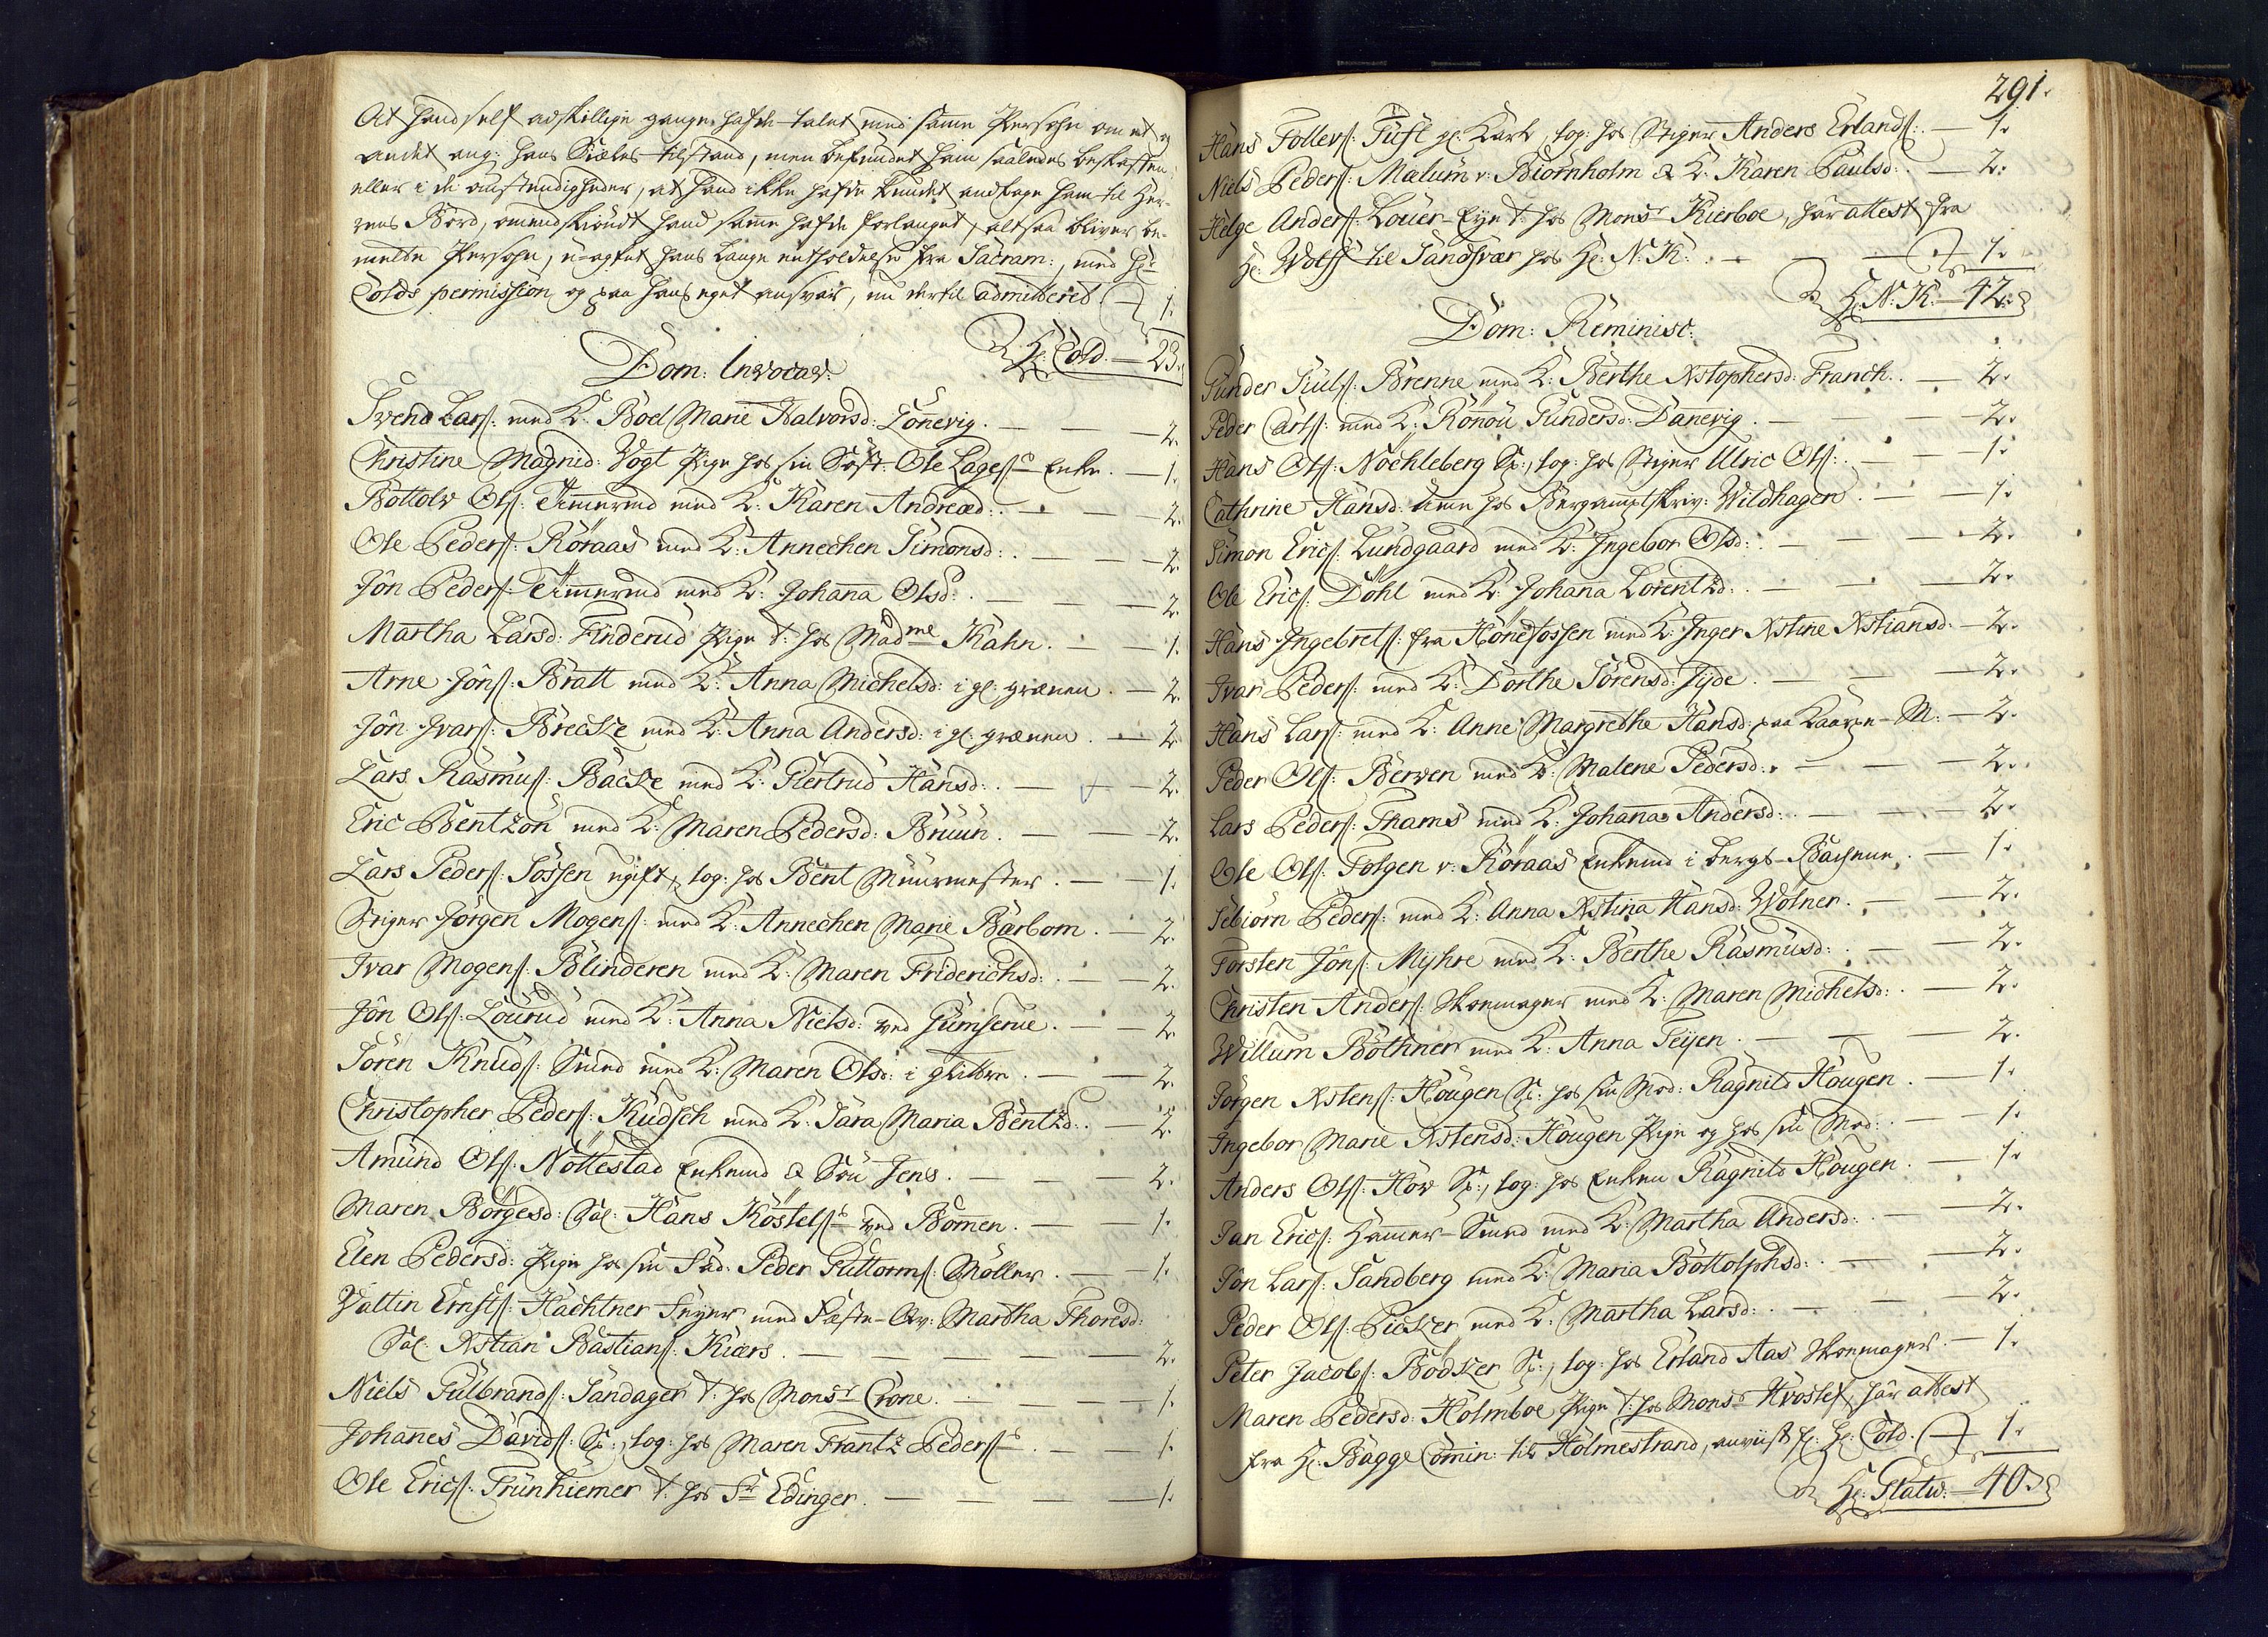 At hand self adskillige gange hafde talet med samme Persohn om et og
andet ang: hans Siæles tilstand, men befundet ham saaledes beskaffen,
eller i de omstendigheder, at hand ikke hafde kundet andtage ham til Her-
rens Bord, omendskiöndt hand samme hafde forlanget, altsaa bliver be-
melte Persohn, u-agtet hans lange entholdelse fra Sacram:, med Hr:
Colds permission og paa hans eget ansvar, nu dertil admitteret — 1.
Hr: Cold. — 23.
Dom: Invocav:
Svend Lars: med K: Boel Marie Halvorsd: Lönevig. — 2.
Christine Magnid: Vogt Pige hos sin Söst: Ole Lages Enke. — 1.
Bottolv Ols: Timerud med K: Karen Andread: — 2.
Ole Peders: Röraas med K: Annechen Simonsd: — 2.
Jön Peders: Timerud med K: Johana Olsd: — 2.
Martha Larsd: Finderud Pige t: hos Madme Kahn. — 1.
Arne Jöns: Bratt med K: Anna Michelsd: i gl: grænen. — 2.
Jön Ivars: Brecke med K: Anna Andersd: i gl: grænen. — 2.
Lars Rasmus: Backe med K: Giertrud Hansd: — 2.
Eric Bentzon med K: Maren Pedersd: Bruun. — 2.
Lars Peders: Sössen ugift, log: hos Bent Muurmester. — 1.
Stiger Jörgen Mogens: med K: Annechen Marie Barbom. — 2.
Ivar Mogens: Blinderen med K: Maren Friderichsd: — 2.
Jön Ols: Lourud med K: Anna Nielsd: ved — 2.
Sören Knuds: Smed med K: Maren Olsd: i glittre. — 2.
Christopher Peders: Kudsch med K: Sara Maria Bentzd: — 2.
Amund Ols: Nöttestad Enkemd & Sön Jens. — 2.
Maren Börgesd: Sal: Hans Köstels ved Bomen. — 1.
Elen Pedersd: Pige hos sin Fad: Peder Guttorms: Möller. — 1.
Valtin Ernsts: Hachtner med Fæste-Qv: Martha Thoresd:
Sal: Xstian Bastians: Kiærs. — 2.
Niels Gulbrands: Sandager t: hos Monsr Crone. — 1.
Johanes Davids: Sv:, log: hos Maren Frantz Peders — 1.
Ole Erics: Trunhiemer t: hos Sr Edinger. — 1.
291.
Hans Tollevs: Tuft gl: Karl, log: hos Stiger Anders Erlands: — 1.
Niels Peders: Mælum v: Biörnholm & K: Karen Paulsd: — 2.
Helge Anders: Louer-Eje t: hos Monsr Kierboe, har attest fra
Hr: Wolff til Sandsvær hos Hr: N: K: — 1.
Hr: N: K: — 42.
Dom: Reminisc:
Gunder Juls: Brenne med K: Berthe Xstophersd: Franch. — 2.
Peder Carls: med K: Rönou Gundersd: Danevig. — 2.
Hans Ols: Nöchleberg Sv:, log: hos Stiger Ulric Ols: — 1.
Cathrine Hansd: Ame hos Bergamptskriv: Wildhagen. — 1.
Simon Erics: Lundgaard med K: Ingebor Olsd: — 2.
Ole Erics: Döhl med K: Johana Lorentzd: — 2.
Hans Ingebrets: fra Hönefossen med K: Inger Xstine Xstiansd: — 2.
Ivar Peders: med K: Dorthe Sörensd: Jyde. — 2.
Hans Lars: med K: Anne Margrethe Hansd: paa Kaaren-M: — 2.
Peder Ols: Berven med K: Malene Pedersd: — 2.
Lars Peders: Thams med K: Johana Andersd: — 2.
Ole Ols: Folgen v: Röraas Enkemd i bergs-Bachene. — 1.
Sebiörn Peders: med K: Anna Xstina Hansd: Wolner. — 2.
Torsten Jöns: Myhre med K: Berthe Rasmusd: — 2.
Christen Anders: Skoemager med K: Maren Michelsd: — 2.
Willum Böthner med K: Anna Teyen. — 2.
Jörgen Xstens: Hougen Sv: hos sin Mod: Ragnild Hougen. — 1.
Ingebor Marie Xstensd: Hougen Pige og hos sin Mod: — 1.
Anders Ols: Hov Sv:, log: hos Enken Ragnild Hougen. — 1.
Jan Erics: Hamer-Smed med K: Martha Andersd: — 2.
Jön Lars: Sandberg med K: Maria Bottolphsd: — 2.
Peder Ols: Piecker med K: Martha Larsd: — 2.
Peter Jacobs: Bödker Sv:, log: hos Erland Aas Skoemager. — 1.
Maren Pedersd: Holmboe Pige t: hos Monsr Hvoslef, har attest
fra Hr: Bagge Comin: til Holmestrand, anviist fr: Hr: Cold. — 1.
Hr: Flatw: — 40.